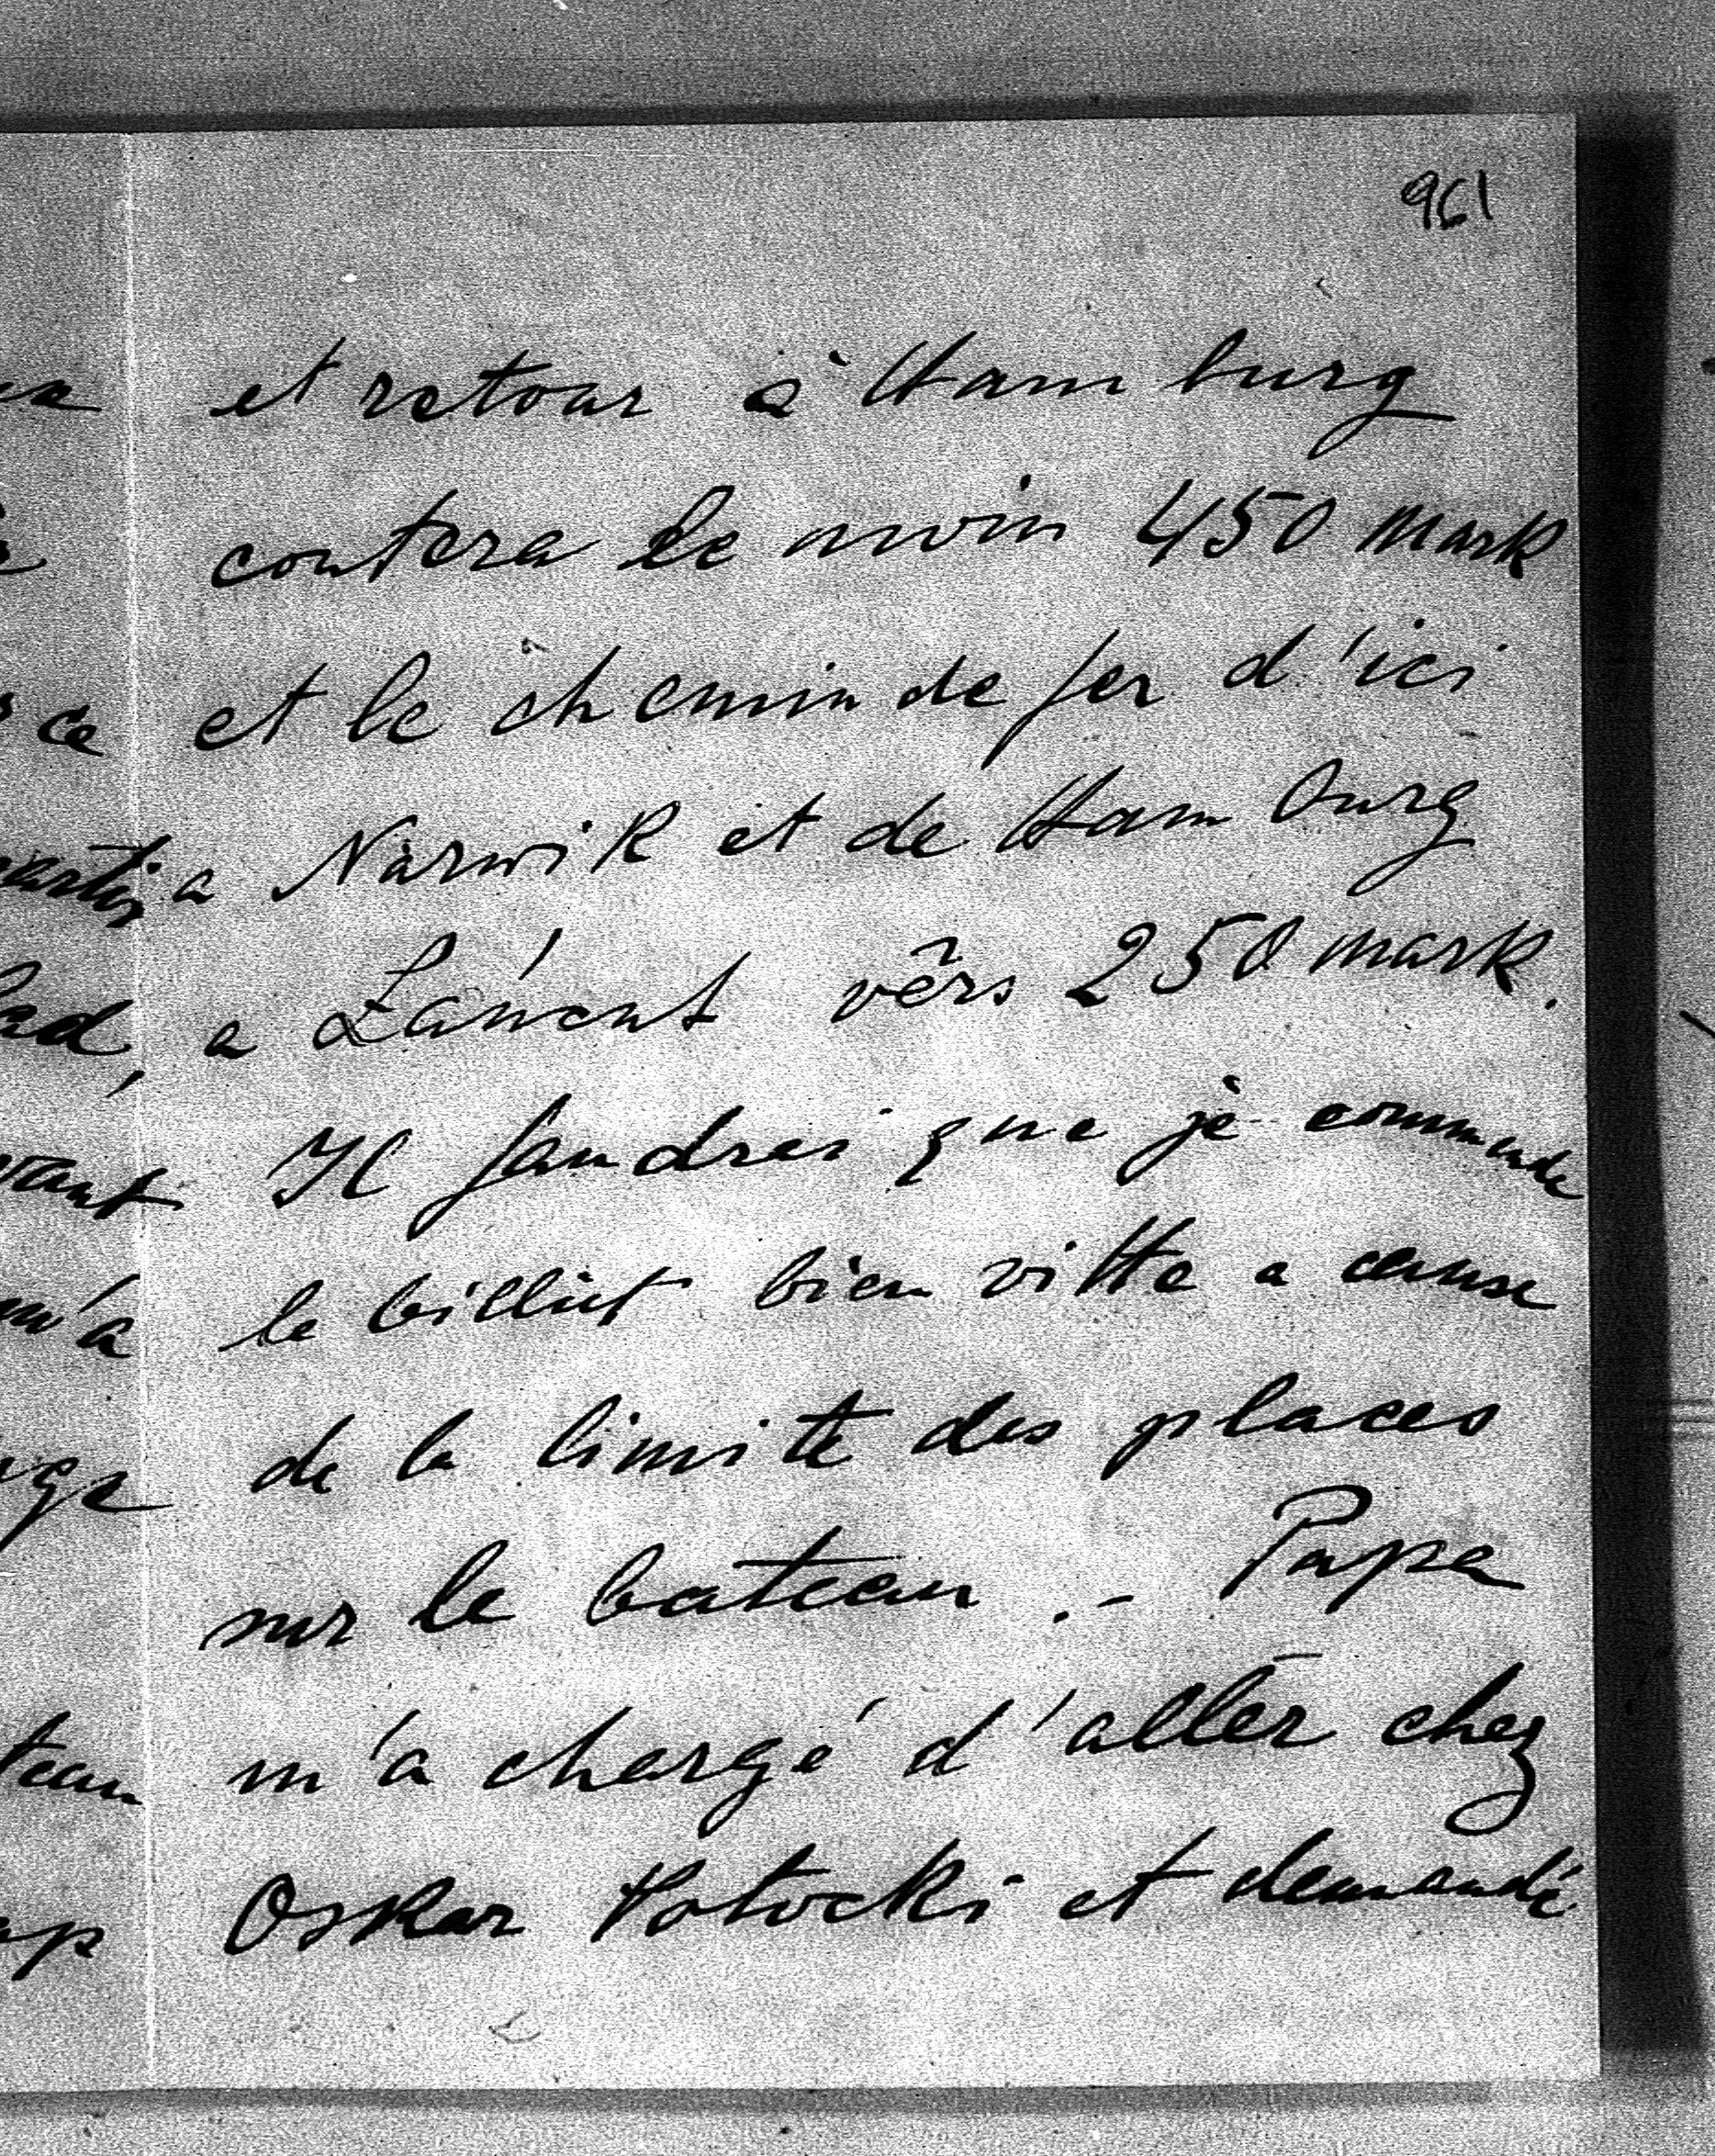 961
et retour à Hamburg
coutera le moin 450 mark
et le chemin de fer d'ici
a Narwik et de Hamburg
a Łańcut vêrs 250 mark.
Il faudrei que jè commende
le billiet bien vitte a cause
de la limite des places
sur le bateau.- Papa
m'a chargé d'aller chez
Oskar Potocki et demandé